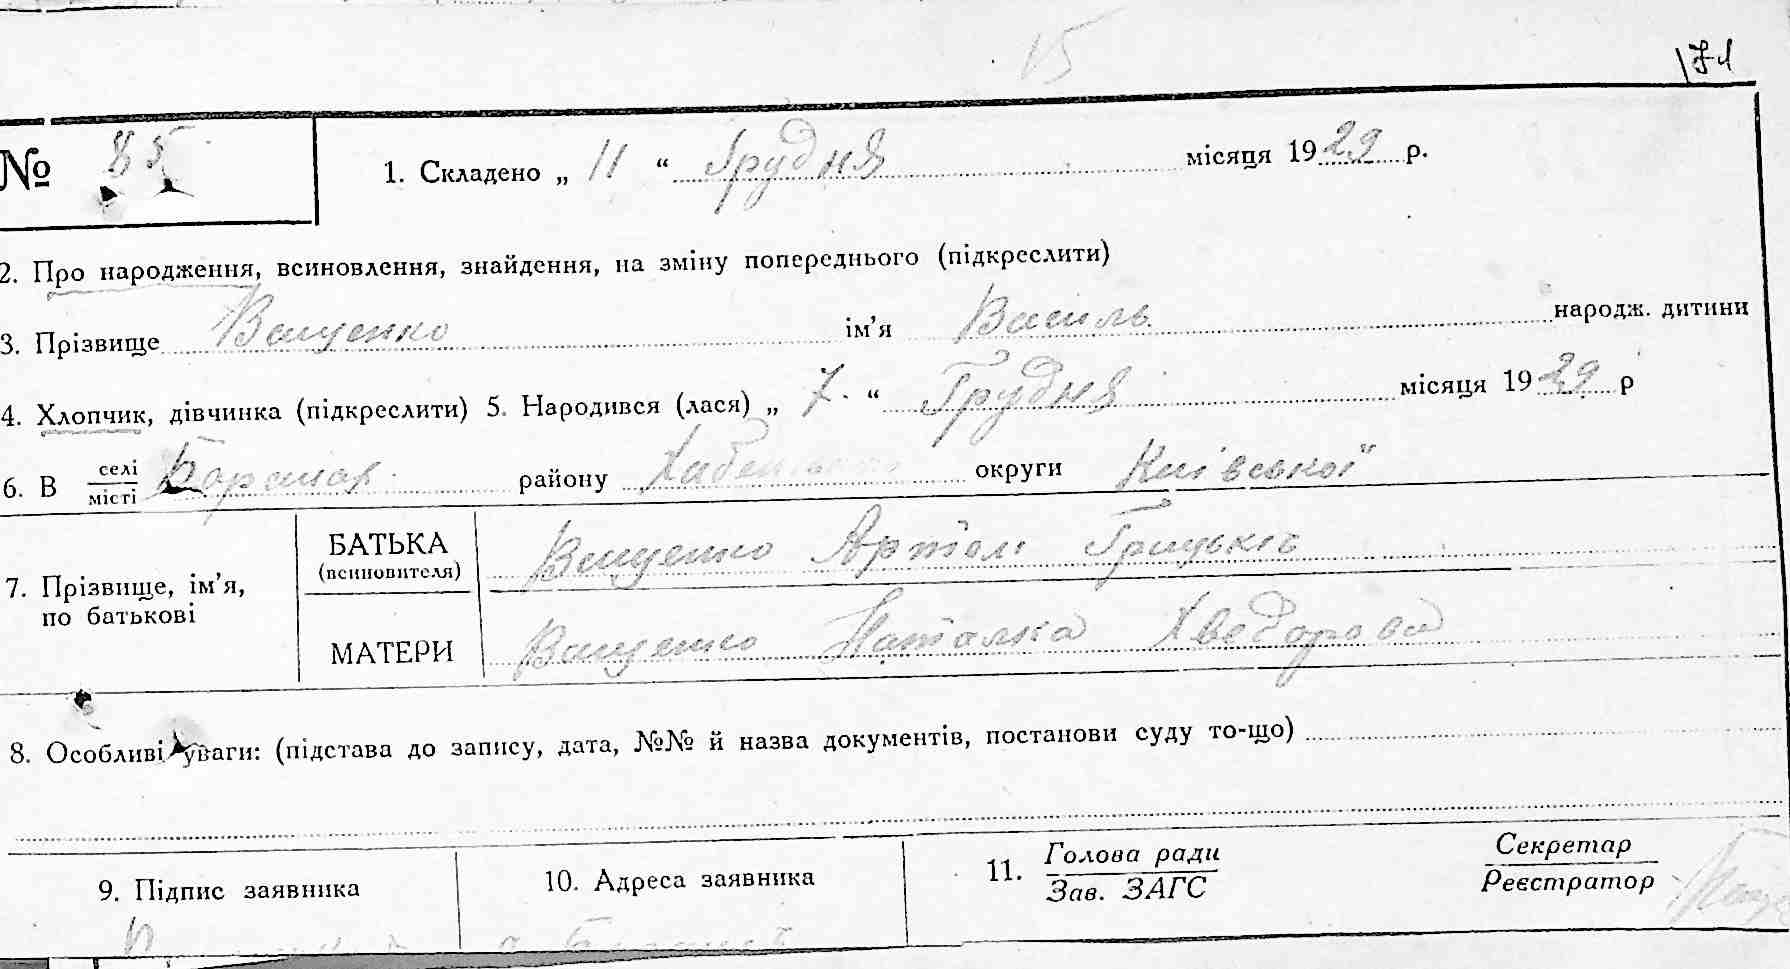 15
171
№ 85
1. Складено „ 11 “ Грудня місяця 1929 р.
2. Про народження, всиновлення, знайдення, на зміну попереднього (підкреслити)
3. Прізвище Ващенко ім’я Василь народж. дитини
4. Хлопчик, дівчинка (підкреслити) 5. Народився (лася) „ 7 “ Грудня місяця 1929 р
6. В селі / місті району округи Київської
7. Прізвище, ім’я, по батькові
БАТЬКА (всиновителя) Ващенко Артем Грицьків
МАТЕРИ Ващенко Наталка Хведорова
8. Особливі уваги: (підстава до запису, дата, №№ й назва документів, постанови суду то-що)
9. Підпис заявника
10. Адреса заявника
11. Голова ради / Зав. ЗАГС
Секретар / Реєстратор